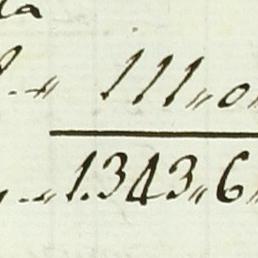 111,,0,,
1.343,,6,,